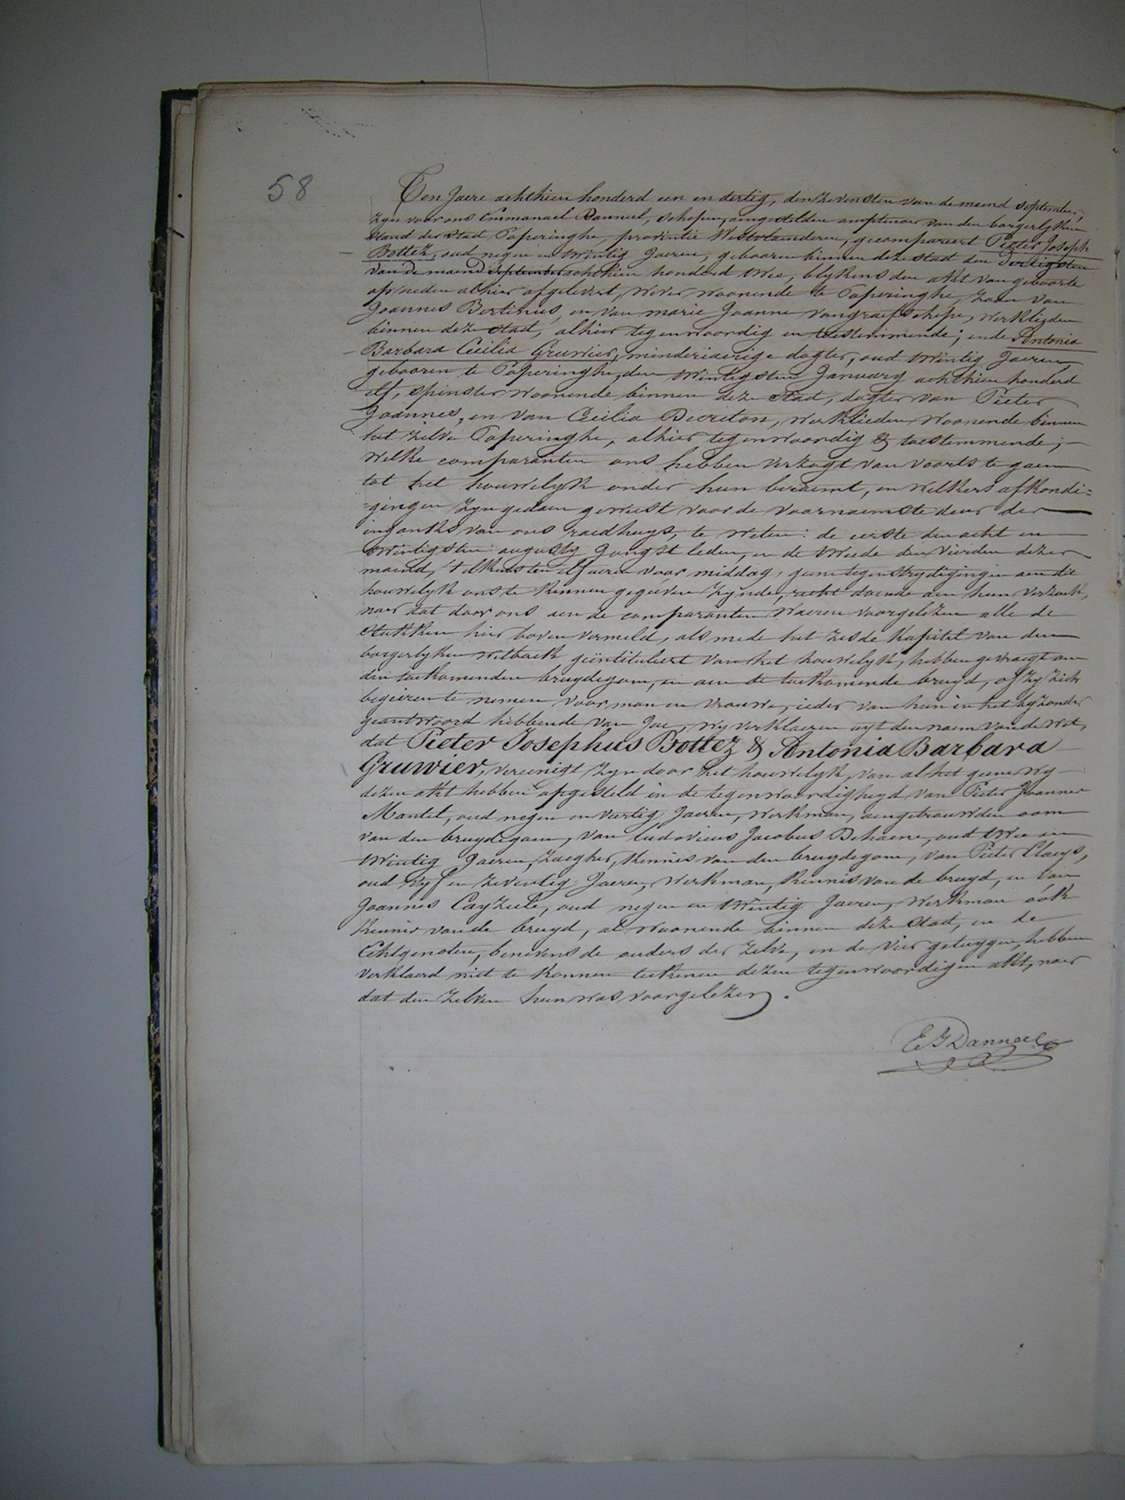 58
Ten Jaere achthien honderd een en dertig, den zevensten van de maend September,
zyn voor ons Emmanuel Dannoel, schepen, aengestelden amptenaer van den borgerlyken
stand der stad Poperinghe provintie Westvlaenderen, gecompareert Pieter Joseph
Bottez, oud negen en twintig Jaeren, gebooren binnen deze stad den dertigsten
van de maend September achthien honderd twee, blykens den akt van geboorte
op heden alhier afgelevert, wever woonende te Poperinghe, zoon van
Joannes Bertinus, en van marie Joanne vangraefschepe, werklieden
binnen deze stad, alhier tegenwoordig en toestemmende; ende Antonia
Barbara Cecilia Gruwier, minderjaerige dogter, oud twintig Jaeren
gebooren te Poperinghe, den twintigsten January achthien honderd
elf, spinster woonende binnen deze stad, dogter van Pieter
Joannes, en van Cecilia Decreton, werklieden woonende binnen
het zelve Poperinghe, alhier tegenwoordig & toestemmende;
welke comparanten ons hebben verzogt van voorts te gaen
tot het houwelyk onder hun beraemt, en welkers afkondi=
gingen zyn gedaen geweest voor de voornaemste deur der
ingank van ons raedhuys, te weten: de eerste den acht en
twintigsten augusty jongst leden, en de tweede den vierden dezer
maend, 't elkensten elf uren voor middag; geene tegenstrydigingen aen die
houwelyk ons te kennen gegeven zynde, recht doende aen hun verzoek,
naer dat door ons aen de comparanten waeren voorgelezen alle de
stukken hier boven vermeld, als mede het zesde kapitel van den
borgerlyken wetboek geïntituleert van het houwelyk, hebben gevraegt aen
den toekomenden bruydegom, en aen de toekomende bruyd, of zy zich
begeiren te nemen voor man en vrouwe, ieder van hun in het byzonder
geantwoord hebbende van Jae, wy verklaeren uyt den naem van de wet,
dat Pieter Josephus Bottez & Antonia Barbara
Gruwier, vereenigt zyn door het houwelyk, van al het geene wy
dezen akt hebben opgesteld in de tegenwoordigheyd van Pieter Joannes
Mantel, oud negen en vertig Jaeren, werkman, aengetrouwden oom
van den bruydegom, van Ludovicus Jacobus Dehaene, oud twee en
twintig Jaeren, zaegher, kennis van den bruydegom, van Pieter Claeys,
oud vyf en zeventig Jaeren, werkman, kennis van de bruyd, en van
Joannes Cayzeele, oud negen en twintig Jaeren, werkman óók
kennis van de bruyd, al woonende binnen deze stad, en de
Echtgenoten, benevens de ouders der zelve, en de vier getuygen, hebben
verklaerd niet te konnen teekenen dezen tegenwoordigen akt, naer
dat den zelven hun was voorgelezen.
E J Dannoel